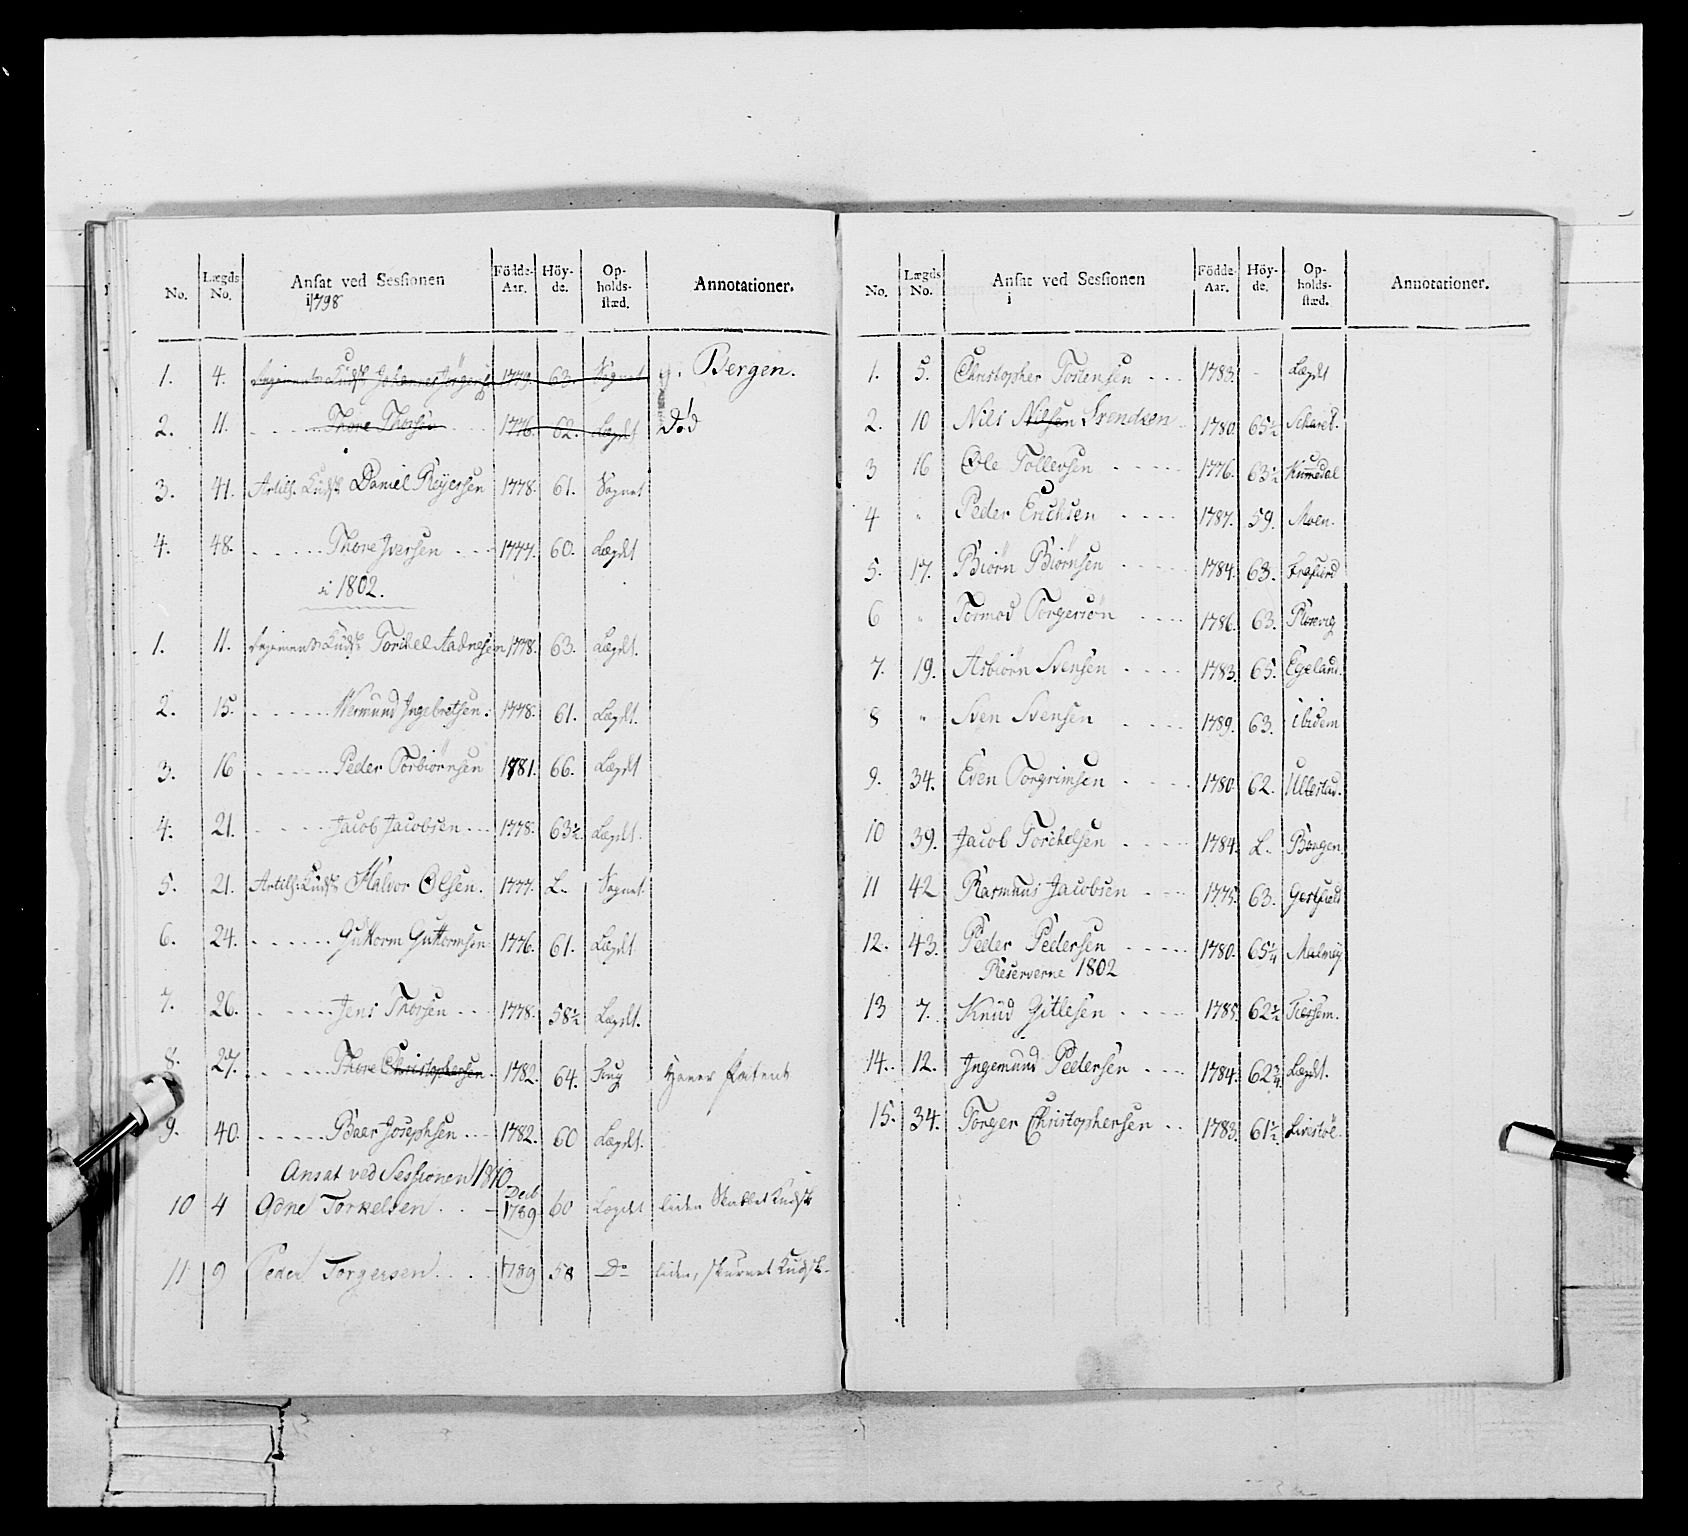 No. Lægds No. Ansat ved Sessionen i 1798 Födde-Aar. Höy-de. Op-holds-stæd. Annotationer.
1. 4. Regiments Kudsk Johannes Jörgens 1779. 63. Sognet Bergen.
2. 11. Thore Thorsen 1776. 62. Lægdt Död
3. 41. Artill. Kudsk Daniel Reyersen 1778. 61. Sognet
4. 48. Thore Iversen 1777. 60. Lægdt
i 1802.
1. 11. Regiments Kudsk Torkel Aadnesen 1778. 63. Lægdt.
2. 15. Wermund Ingebretsen. 1778. 61. Lægdt.
3. 16 Peder Torbiörnsen 1781. 66. Lægdt
4. 21. Jacob Jacobsen 1778. 63½ Lægdt.
5. 21. Artill: Kudsk Halvor Olsen. 1777. L. Sognet
6. 24. Guttorm Guttormsen 1776. 61. Lægdt
7. 26. Jens Thorsen 1778. 58½ Lægdt.
8. 27. Thore Christophersen 1782. 64. Patent
9. 40. Baer Josephsen 1782. 60 Lægdt.
Ansat ved Sessionen 1810
10 4 Odne Torkelsen Deb 1789 60 Lægdt liden Kudsk
11 9 Peder Torgersen 1789 58 Do liden, Kudsk
No. Lægds No. Ansat ved Sessionen i Födde-Aar. Höy-de. Op-holds-stæd. Annotationer.
1. 5. Christopher Tostensen 1783. - Lægdt
2. 10 Nils Nilsen Svendsen 1780 65½
3 16 Ole Tollevsen 1776. 63½ Kummedal
4 " Peder Erichsen 1787. 59. Moen.
5. 17. Biörn Biörnsen 1784. 63.
6 " Tormod Torgersön 1786. 63.
7. 19. Asbiörn Svensen 1783. 65. Egeland.
8 " Sven Svensen 1789. 63. ibidem
9. 34. Even Torgrimsen 1780. 62. Ullestad.
10 39. Jacob Torchelsen 1784. L. Bergen.
11 42 Rasmus Jacobsen 1775. 63.
12. 43. Peder Pedersen 1780. 65¼ Malmey
Reserverne 1802
13 7. Knud Gitlesen 1785. 62½
14. 12. Ingemund Pedersen 1784. 62¾ Lægdt.
15. 34. Torger Christophersen 1783. 61½